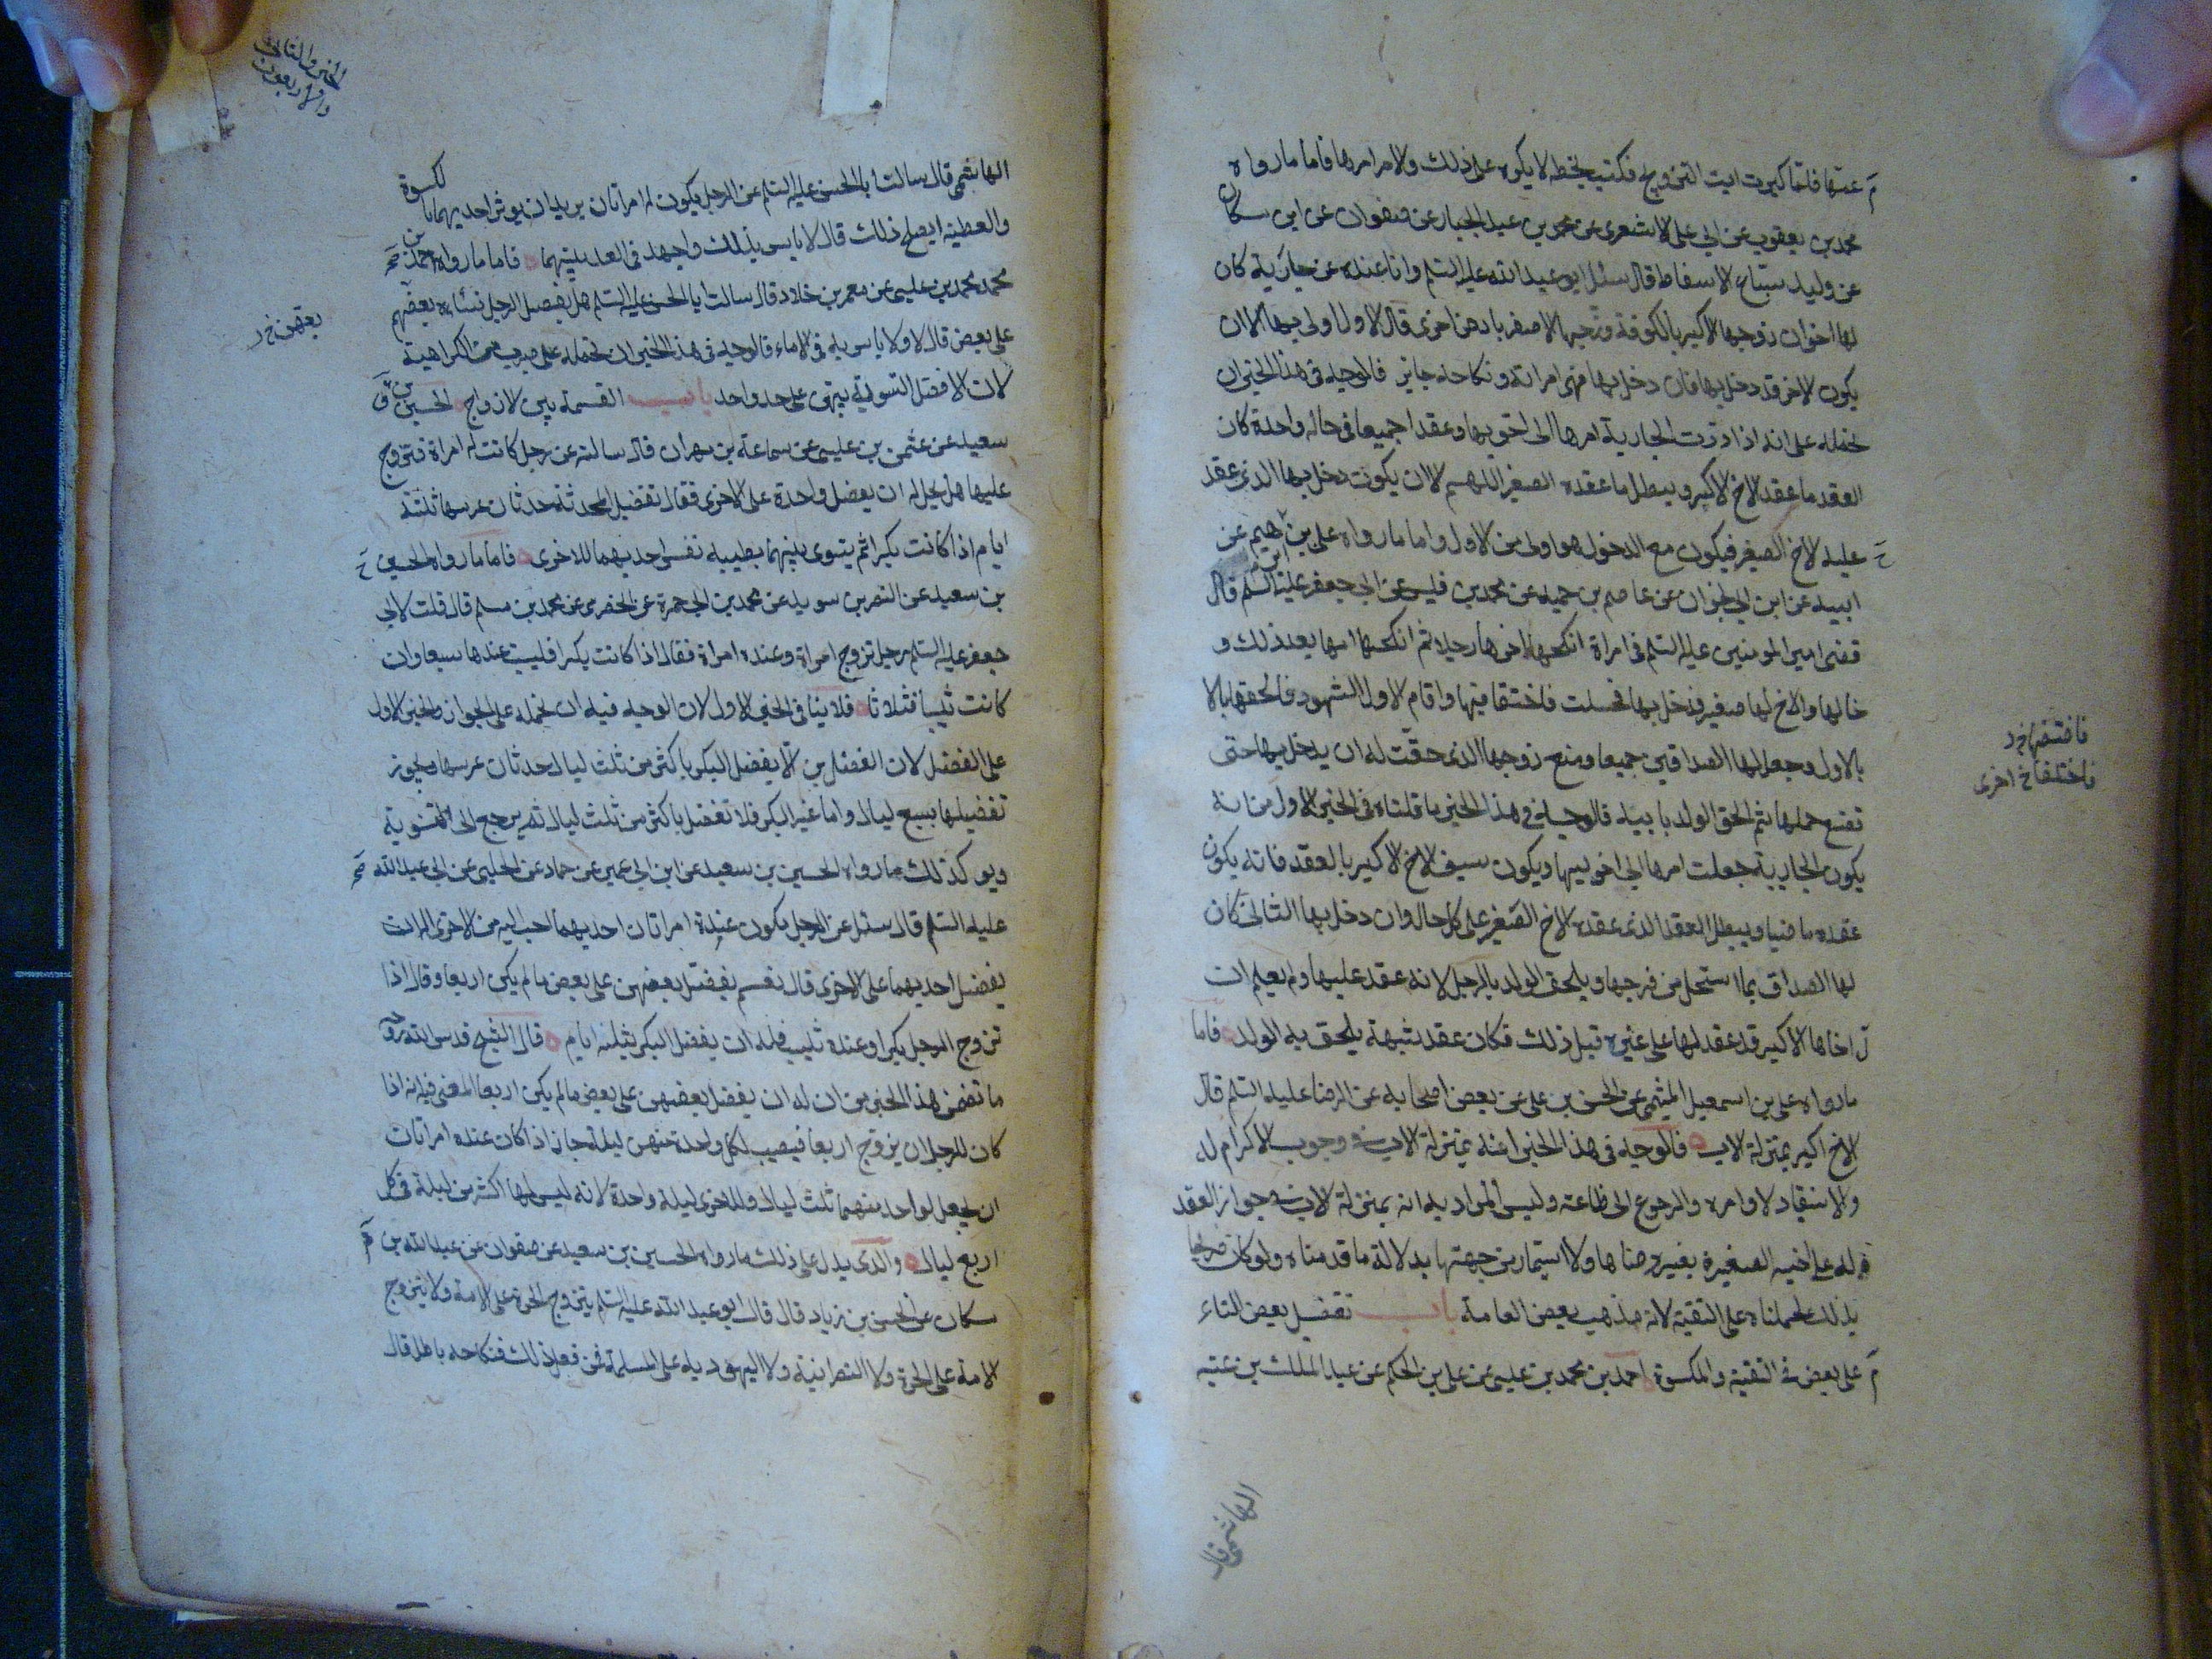 عمتها فلما كبرت ابت التزويج فكتب بخطه لا يكره على ذلك والامر امرها فاما ما رواه
محمد بن يعقوب عن ابي علي الاشعرى عن محمد بن عبد الجبار عن صفوان عن ابن مسكان
عن وليد بياع الاسفاط قال سئل ابو عبد الله عليه السلم وانا عنده عن جارية كان
لها اخوان زوجها الاكبر بالكوفة وزوجها الاصغر بارض اخرى قال الاول اولى بها الا ان
يكون الاخر قد دخل بها فان دخل بها فهى امراته ونكاحه جايز فالوجه فى هذا الخبر ان
نحمله على انه اذا ردت الجارية امرها الى اخويها وعقدا جميعا فى حالة واحدة كان
العقد ما عقد الاخ الاكبر ويبطل ما عقده الصغير اللهم الا ان يكون دخل بها الذى عقد
عليه الاخ الصغير فيكون مع الدخول هو اولى من الاول واما ما رواه على بن ابرهيم عن
ابيه عن ابن ابي نجران عن عاصم بن حميد عن محمد بن قيس عن ابي جعفر عليه السلم قال
قضى امير المومنين عليه السلم فى امراة انكحها اخوها رجلا ثم انكحها امها بعد ذلك و
خالها والاخ لها صغير فدخل بها فحبلت فاختقا فيها واقام الاول الشهود فالحقها بالا
بالاول وجعل لها الصداقين جميعا ومنع زوجها الذى حقت له ان يدخل بها حتى
تضع حملها ثم الحق الولد بابيه فالوجه فى هذا الخبر ما قلناه فى الخبر الاول من انه
يكون الجارية جعلت امرها الى اخويها ويكون سبق الاخ الاكبر بالعقد فانه يكون
عقده ماضيا ويبطل العقد الذى عقده الاخ الصغير على كل حال وان دخل بها الثانى كان
لها الصداق بما استحل من فرجها ويلحق الولد بالرجل لانه عقد عليها ولم يعلم ان
اخاها الاكبر قد عقد لها على غيره قبل ذلك فكان عقد شبهة يلحق به الولد فاما
ما رواه على بن اسمعيل الميثمى عن الحسن بن على عن بعض اصحابه عن الرضا عليه السلم قال
الاخ اكبر بمنزلة الاب فالوجه فى هذا الخبر انه بمنزلة الاب فى وجوب الاكرام له
والانقياد لاوامره والرجوع الى طاعته وليس المراد به انه بمنزلة الاب فى جواز العقد
له على اخته الصغيرة بغير رضاها ولا استيمار من جهتها بدلالة ما قدمناه ولو كان صريحا
بذلك لحملناه على التقية لانه مذهب بعض العامة باب تفضيل بعض النساء
على بعض فى النفقة والكسوة احمد بن محمد بن عيسى عن على بن الحكم عن عبد الملك بن عتبه
فافتضها خ د
فاختلفا خ اخرى
الهاشمى قال
الخبر والثالث
والاربعون
الهاشمى قال سالت ابا الحسن عليه السلم عن الرجل يكون له امراتان يريد ان يوثر احديهما بالكسوة
والعطية ايصلح ذلك قال لا باس بذلك واجهد فى العدل بينهما فاما ما رواه احمد بن
محمد محمد بن عيسى عن معمر بن خلاد قال سالت ابا الحسن عليه السلم هل يفضل الرجل نساءه بعضهم
على بعض قال لا ولا باس به فى الاماء فالوجه فى هذا الخبر ان نحمله على ضرب من الكراهية
لان الافضل التسوية بينهن على حد واحد باب القسمة بين الازواج الحسين بن
سعيد عن عثمن بن عيسى عن سماعة بن مهران قال سالته عن رجل كانت له امراة فتزوج
عليها هل يحل له ان يفضل واحدة على الاخرى فقال تفضيل المحدثة حدثان عرسها ثلثة
ايام اذا كانت بكرا ثم يسوى بينهما بطيبة نفس احديهما للاخرى فاما ما رواه الحسين
بن سعيد عن النضر بن سويد عن محمد بن ابي حمزة عن الحضرمى عن محمد بن مسلم قال قلت لابي
جعفر عليه السلم رجل تزوج امراة وعنده امراة فقال اذا كانت بكرا فليبت عندها سبعا وان
كانت ثيبا فثلاثا فلا ينافى الخبر الاول لان الوجه فيه ان نحمله على الجواز والخبر الاول
على الفضل لان الفضل ان لا يفضل البكر باكثر من ثلث ليال حدثان عرسها ويجوز
تفضيلها بسبع ليال واما غير البكر فلا تفضل باكثر من ثلث ليال ثم يرجع الى التسوية
ويوكد ذلك ما رواه الحسين بن سعيد عن ابن ابي عمير عن حماد عن الحلبى عن ابي عبد الله
عليه السلم قال سئل عن الرجل يكون عنده امراتان احديهما احب اليه من الاخرى اله ان
يفضل احديهما على الاخرى قال نعم يفضل بعضهن على بعض ما لم يكن اربعا وقال اذا
تزوج الرجل بكرا وعنده ثيب فله ان يفضل البكر بثلثة ايام قال الشيخ قدس الله روحه
ما تضمن هذا الخبر من ان له ان يفضل بعضهن على بعض ما لم يكن اربعا المعنى فيه انه اذا
كان للرجل ان يزوج اربعا فيصيب لكل واحدة منهن ليلة جاز اذا كان عنده امراتان
ان يجعل لواحد منهما ثلث ليال وللاخرى ليلة واحدة لانه ليس لها اكثر من ليلة فى كل
اربع ليال والذى يدل على ذلك ما رواه الحسين بن سعيد عن صفوان عن عبد الله بن
مسكان عن الحسن بن زياد قال قال ابو عبد الله عليه السلم يتزوج الحرة على الامة ولا يتزوج
الامة على الحرة ولا النصرانية ولا اليهودية على المسلمة فمن فعل ذلك فنكاحه باطل قال
بعضهن خ د